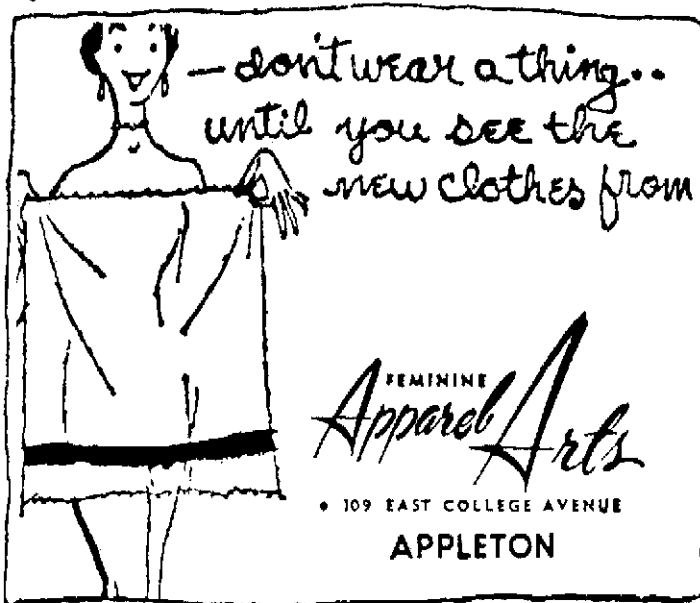 —don't wear a thing..
until you see the
new clothes from
FEMININE
Apparel Arts
• 109 EAST COLLEGE AVENUE
APPLETON